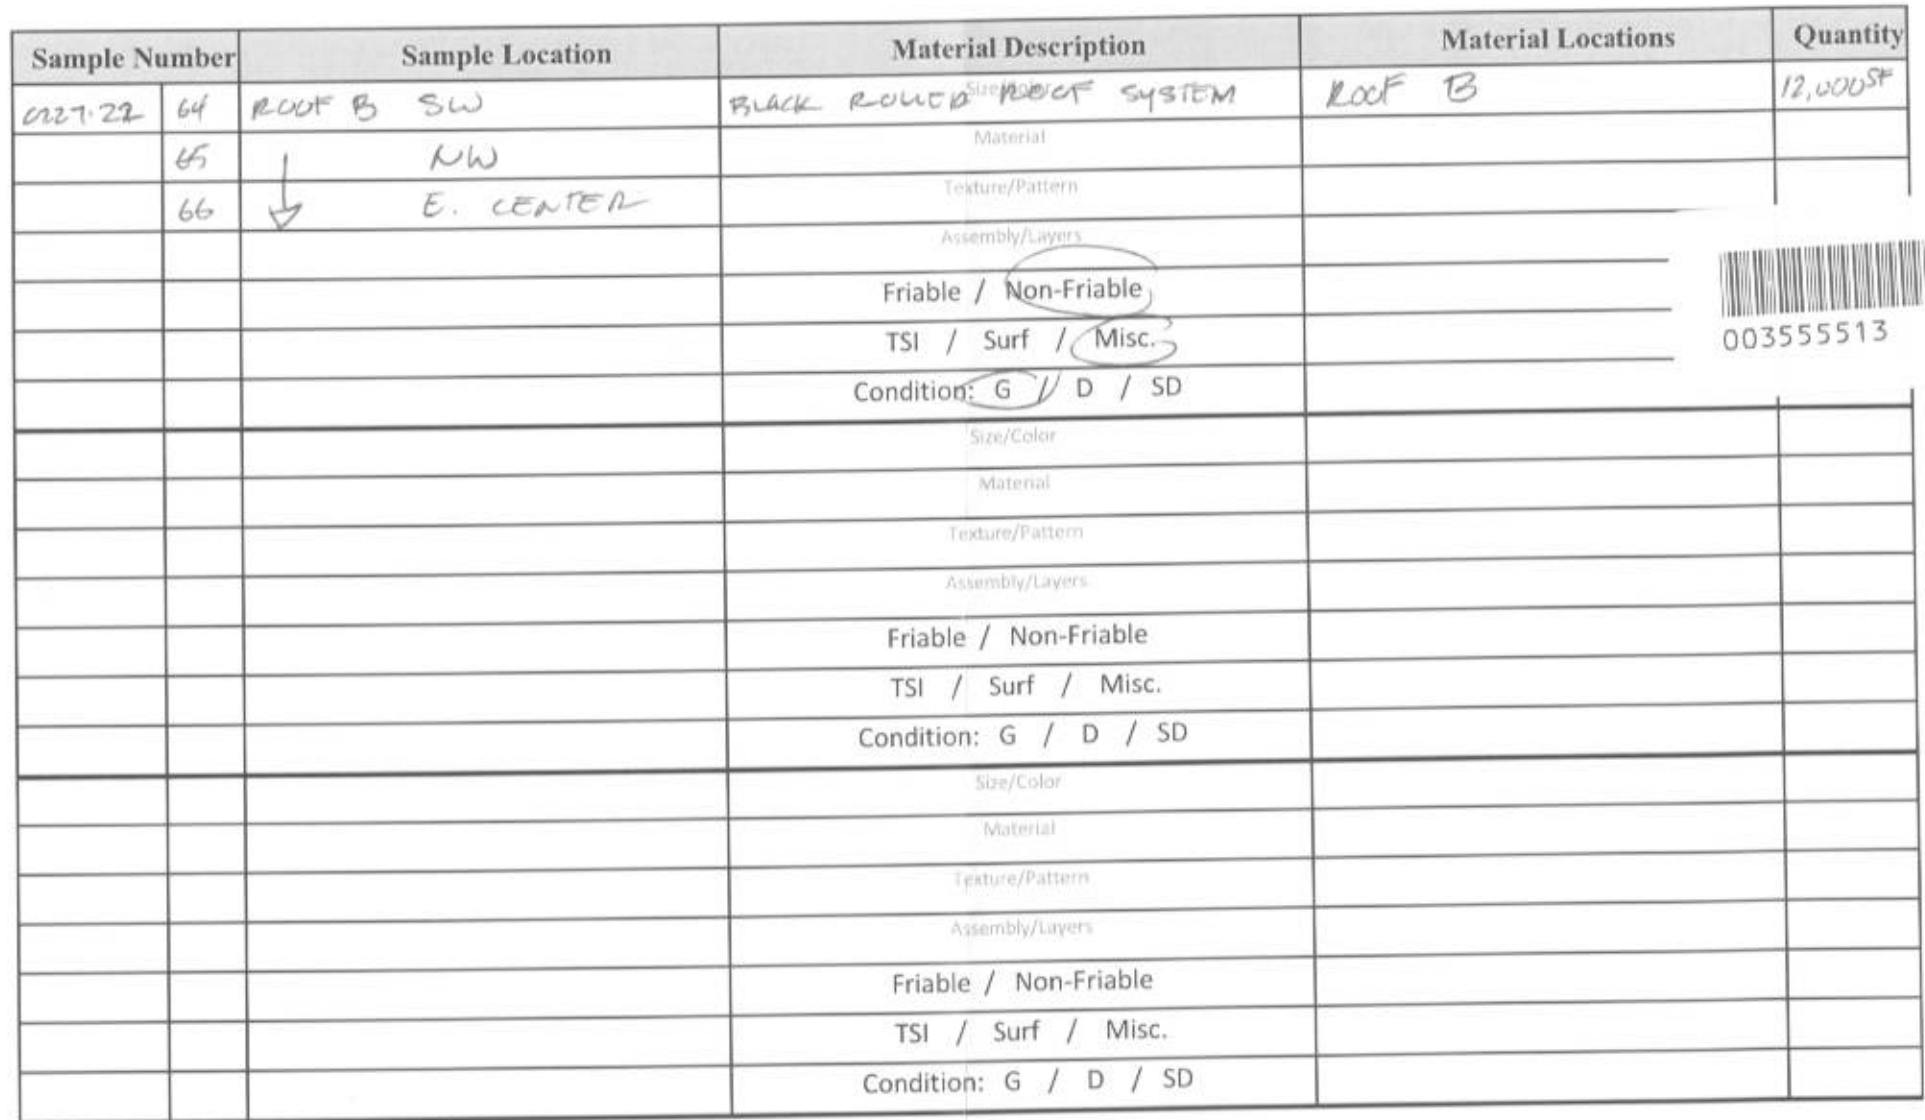 Sample Number Sample Location Material Description Material Locations Quantity
0227.22 64 ROOF B SW BLACK ROLLED ROOF SYSTEM ROOF B 12,000 SF
Size/Color
Material
65 NW
Texture/Pattern
66 E. CENTER
Assembly/Layers
Friable / Non-Friable
TSI / Surf / Misc.
003555513
Condition: G / D / SD
Size/Color
Material
Texture/Pattern
Assembly/Layers
Friable / Non-Friable
TSI / Surf / Misc.
Condition: G / D / SD
Size/Color
Material
Texture/Pattern
Assembly/Layers
Friable / Non-Friable
TSI / Surf / Misc.
Condition: G / D / SD